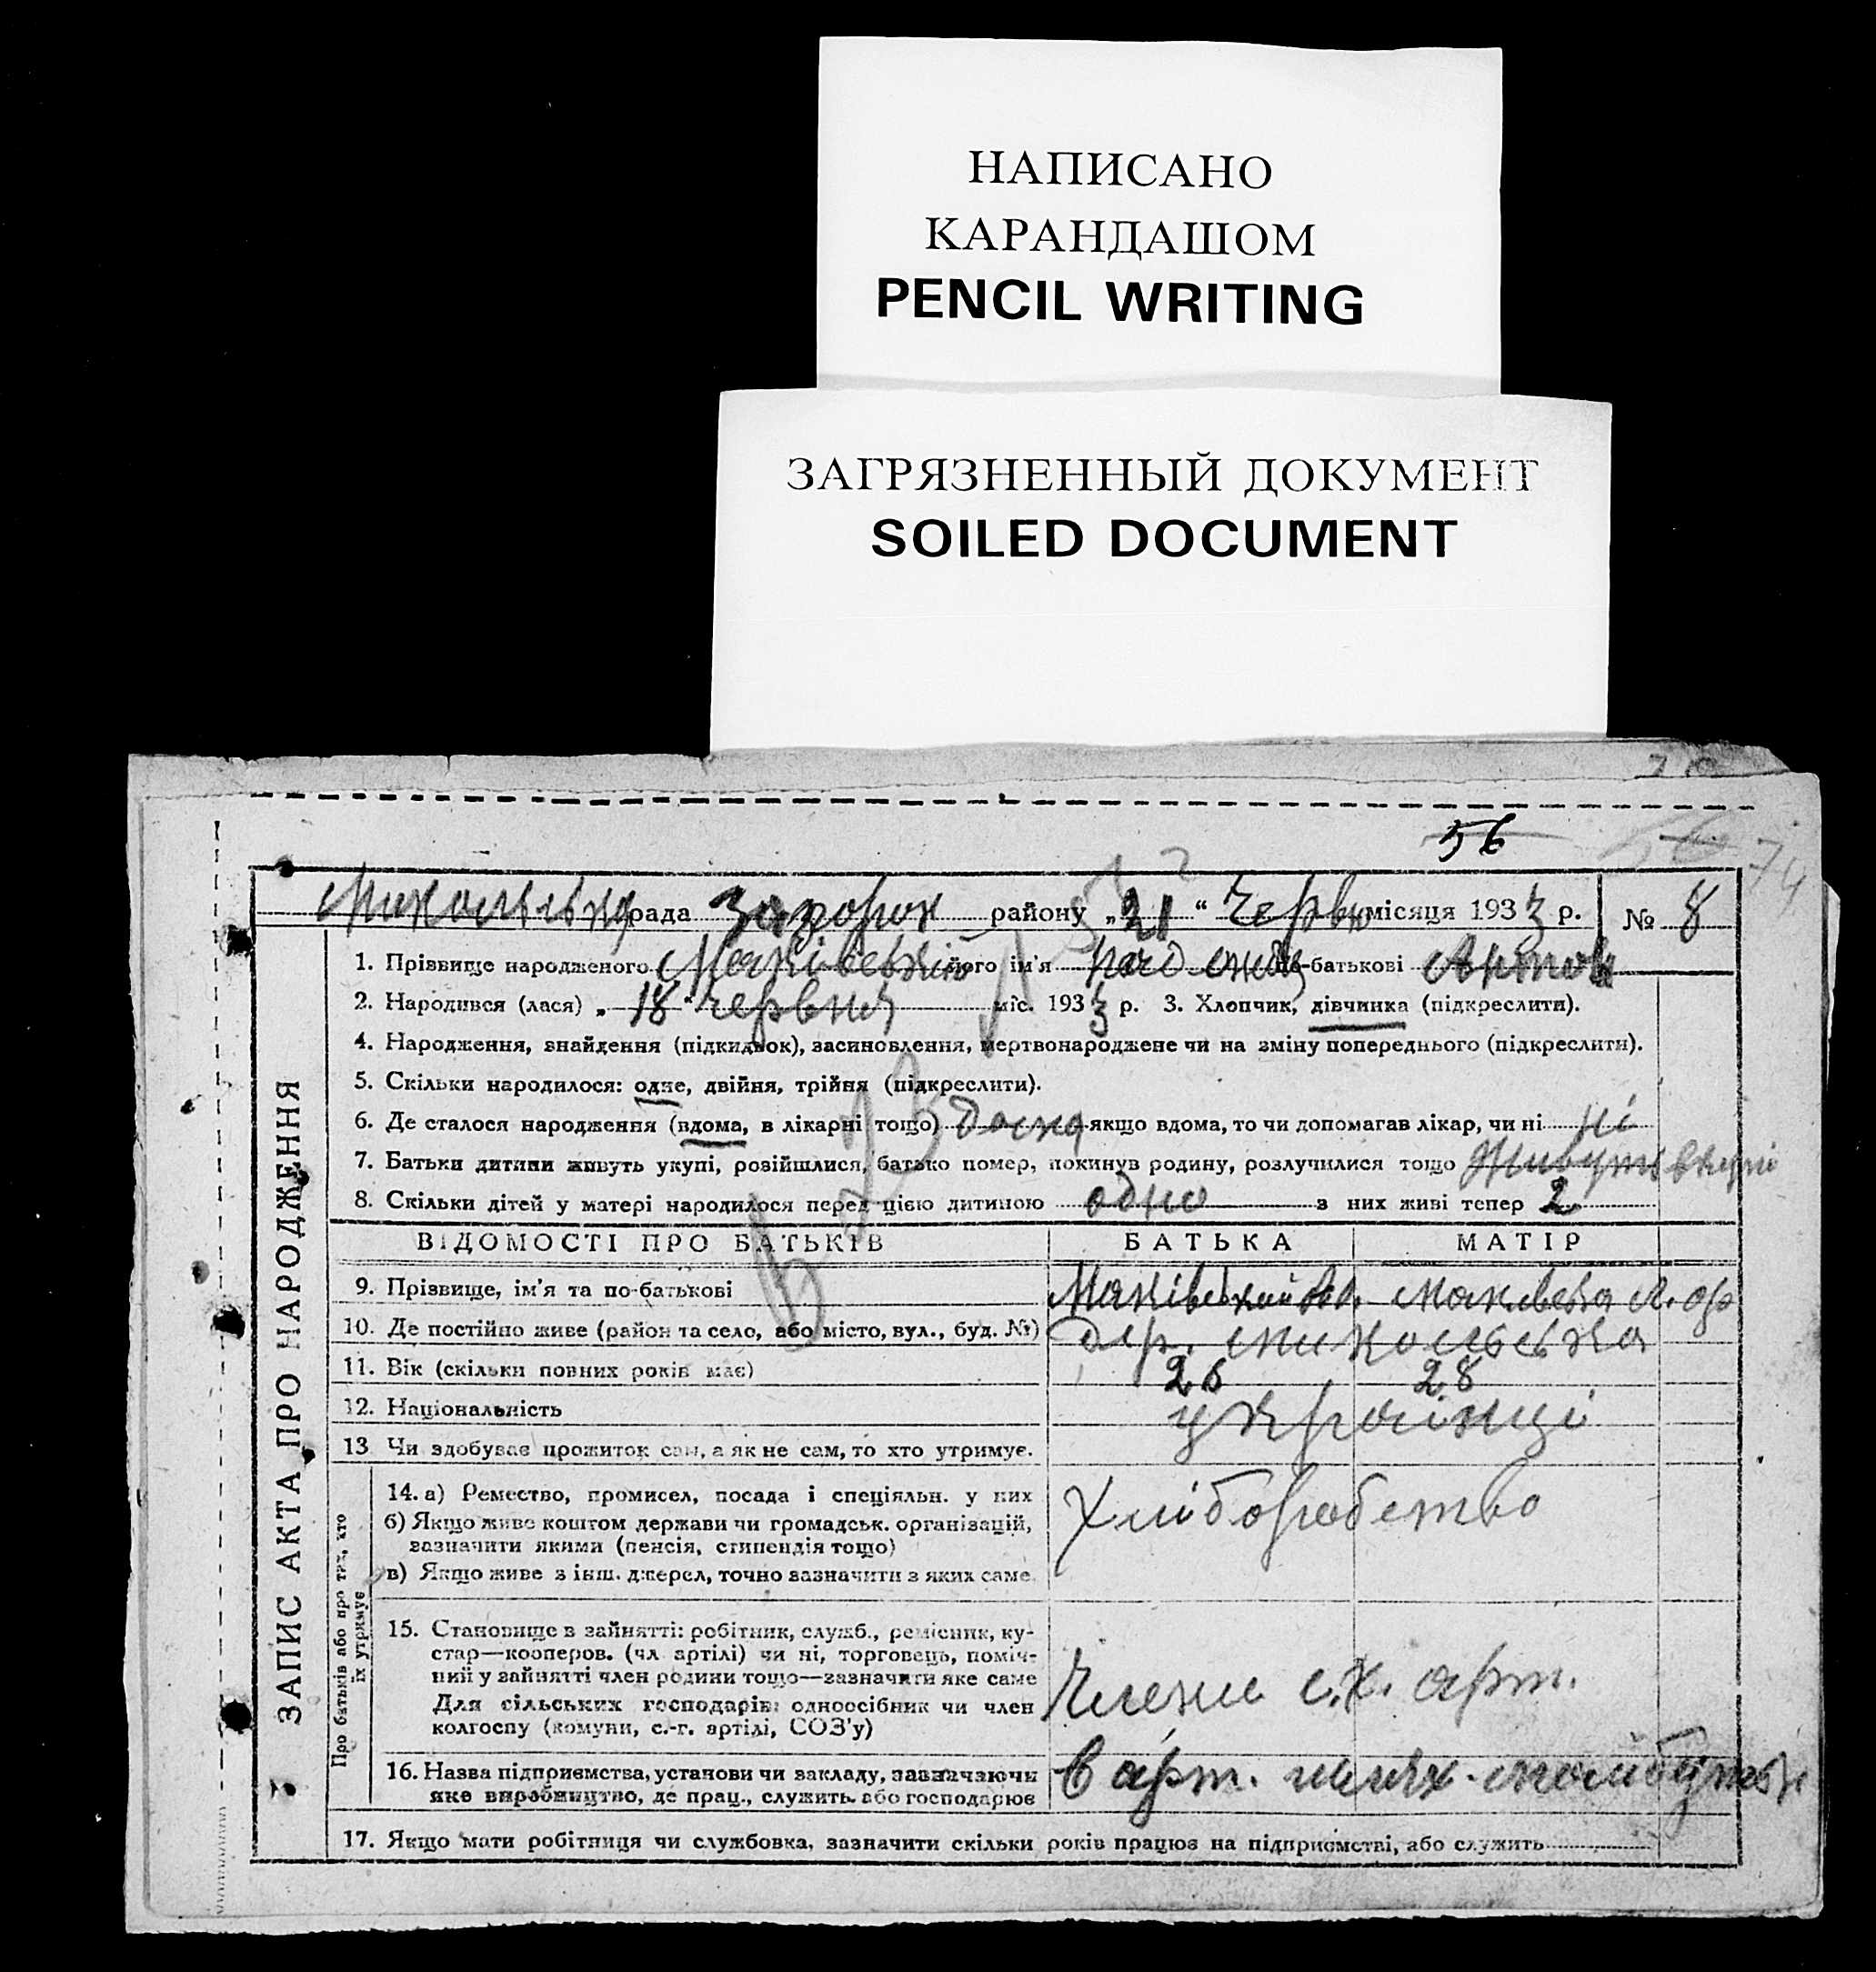 НАПИСАНО
КАРАНДАШОМ
PENCIL WRITING
ЗАГРЯЗНЕННЫЙ ДОКУМЕНТ
SOILED DOCUMENT
56
74
рада району „21“ Червн місяця 1933 р. № 8
1. Прізвище народженого його ім'я по-батькові
2. Народився (лася) „18 червня міс. 1933 р. 3. Хлопчик, дівчинка (підкреслити).
4. Народження, знайдення (підкидьок), засиновлення, мертвонароджене чи на зміну попереднього (підкреслити).
5. Скільки народилося: одне, двійня, трійня (підкреслити).
6. Де сталося народження (вдома, в лікарні тощо) дома якщо вдома, то чи допомагав лікар, чи ні ні
7. Батьки дитини живуть укупі, розійшлися, батько помер, покинув родину, розлучилися тощо живуть вкупі
8. Скільки дітей у матері народилося перед цією дитиною одно з них живі тепер 2
ВІДОМОСТІ ПРО БАТЬКІВ БАТЬКА МАТІР
9. Прізвище, ім'я та по-батькові Маківський
10. Де постійно живе (район та село, або місто, вул., буд. №)
11. Вік (скільки повних років має) 28
12. Національність українці
13. Чи здобуває прожиток сам, а як не сам, то хто утримує.
14. а) Ремество, промисел, посада і спеціяльн. у них Хліборобство
б) Якщо живе коштом держави чи громадськ. організацій,
зазначити якими (пенсія, стипендія тощо)
в) Якщо живе з інш. джерел, точно зазначити з яких саме.
15. Становище в зайнятті: робітник, служб., ремісник, ку-
стар—кооперов. (чл артілі) чи ні, торговець, поміч-
ний у зайнятті член родини тощо—зазначити яке саме
Для сільських господарів: одноосібник чи член
колгоспу (комуни, с.-г. артілі, СОЗ'у) Члени с.х. арт.
16. Назва підприємства, установи чи закладу, зазначаючи
яке виробництво, де прац., служить або господарює В арт. шлях
17. Якщо мати робітниця чи службовка, зазначити скільки років працює на підприємстві, або служить
ЗАПИС АКТА ПРО НАРОДЖЕННЯ
Про батьків або про тих, хто
їх утримує